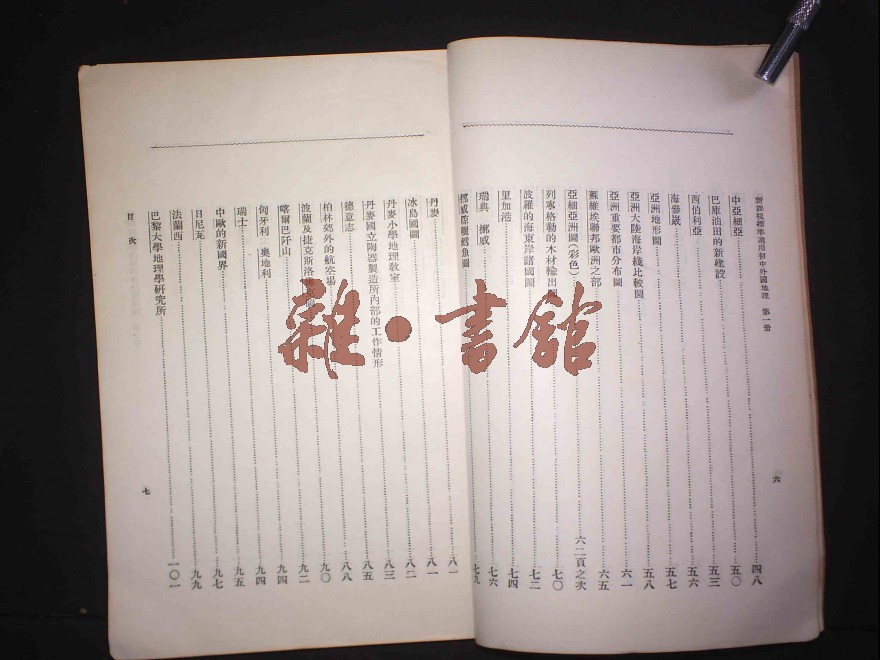 新課程標準適用初中外國地理 第一册
四八
中亞細亞 五〇
巴庫油田的新建設 五三
西伯利亞 五六
海參崴 五七
亞洲地形圖 五八
亞洲大陸海岸綫比較圖 六一
亞洲重要都市分布圖 六五
蘇維埃聯邦歐洲之部
亞細亞洲圖(彩色) 六二頁之次
列寧格勒的木材輸出 七〇
波羅的海東岸諸國圖 七二
里加港 七四
瑞典 挪威 七六
七九
六
丹麥 八一
冰島國圖 八二
丹麥小學地理教室 八三
丹麥國立陶器製造所內部的工作情形 八五
德意志 八八
柏林郊外的航空場 九〇
波蘭及捷克斯洛 九二
喀爾巴阡山 九四
匈牙利 奧地利 九四
瑞士 九五
中歐的新國界 九七
日尼瓦 九九
法蘭西 九九
巴黎大學地理學研究所 一〇一
目次
七
雜·書館